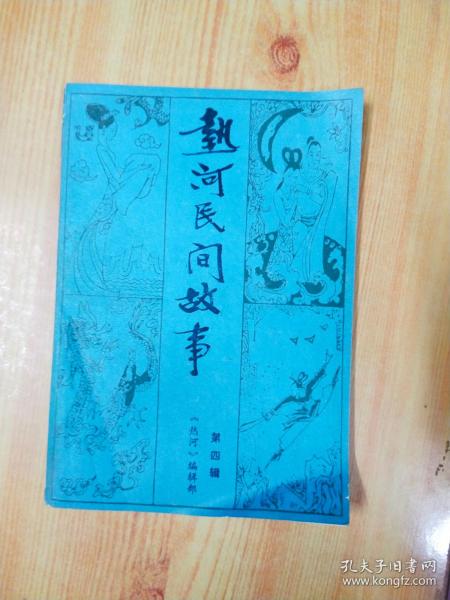 热河民间故事
第四辑
《热河》编辑部
孔夫子旧书网
www.kongfz.com